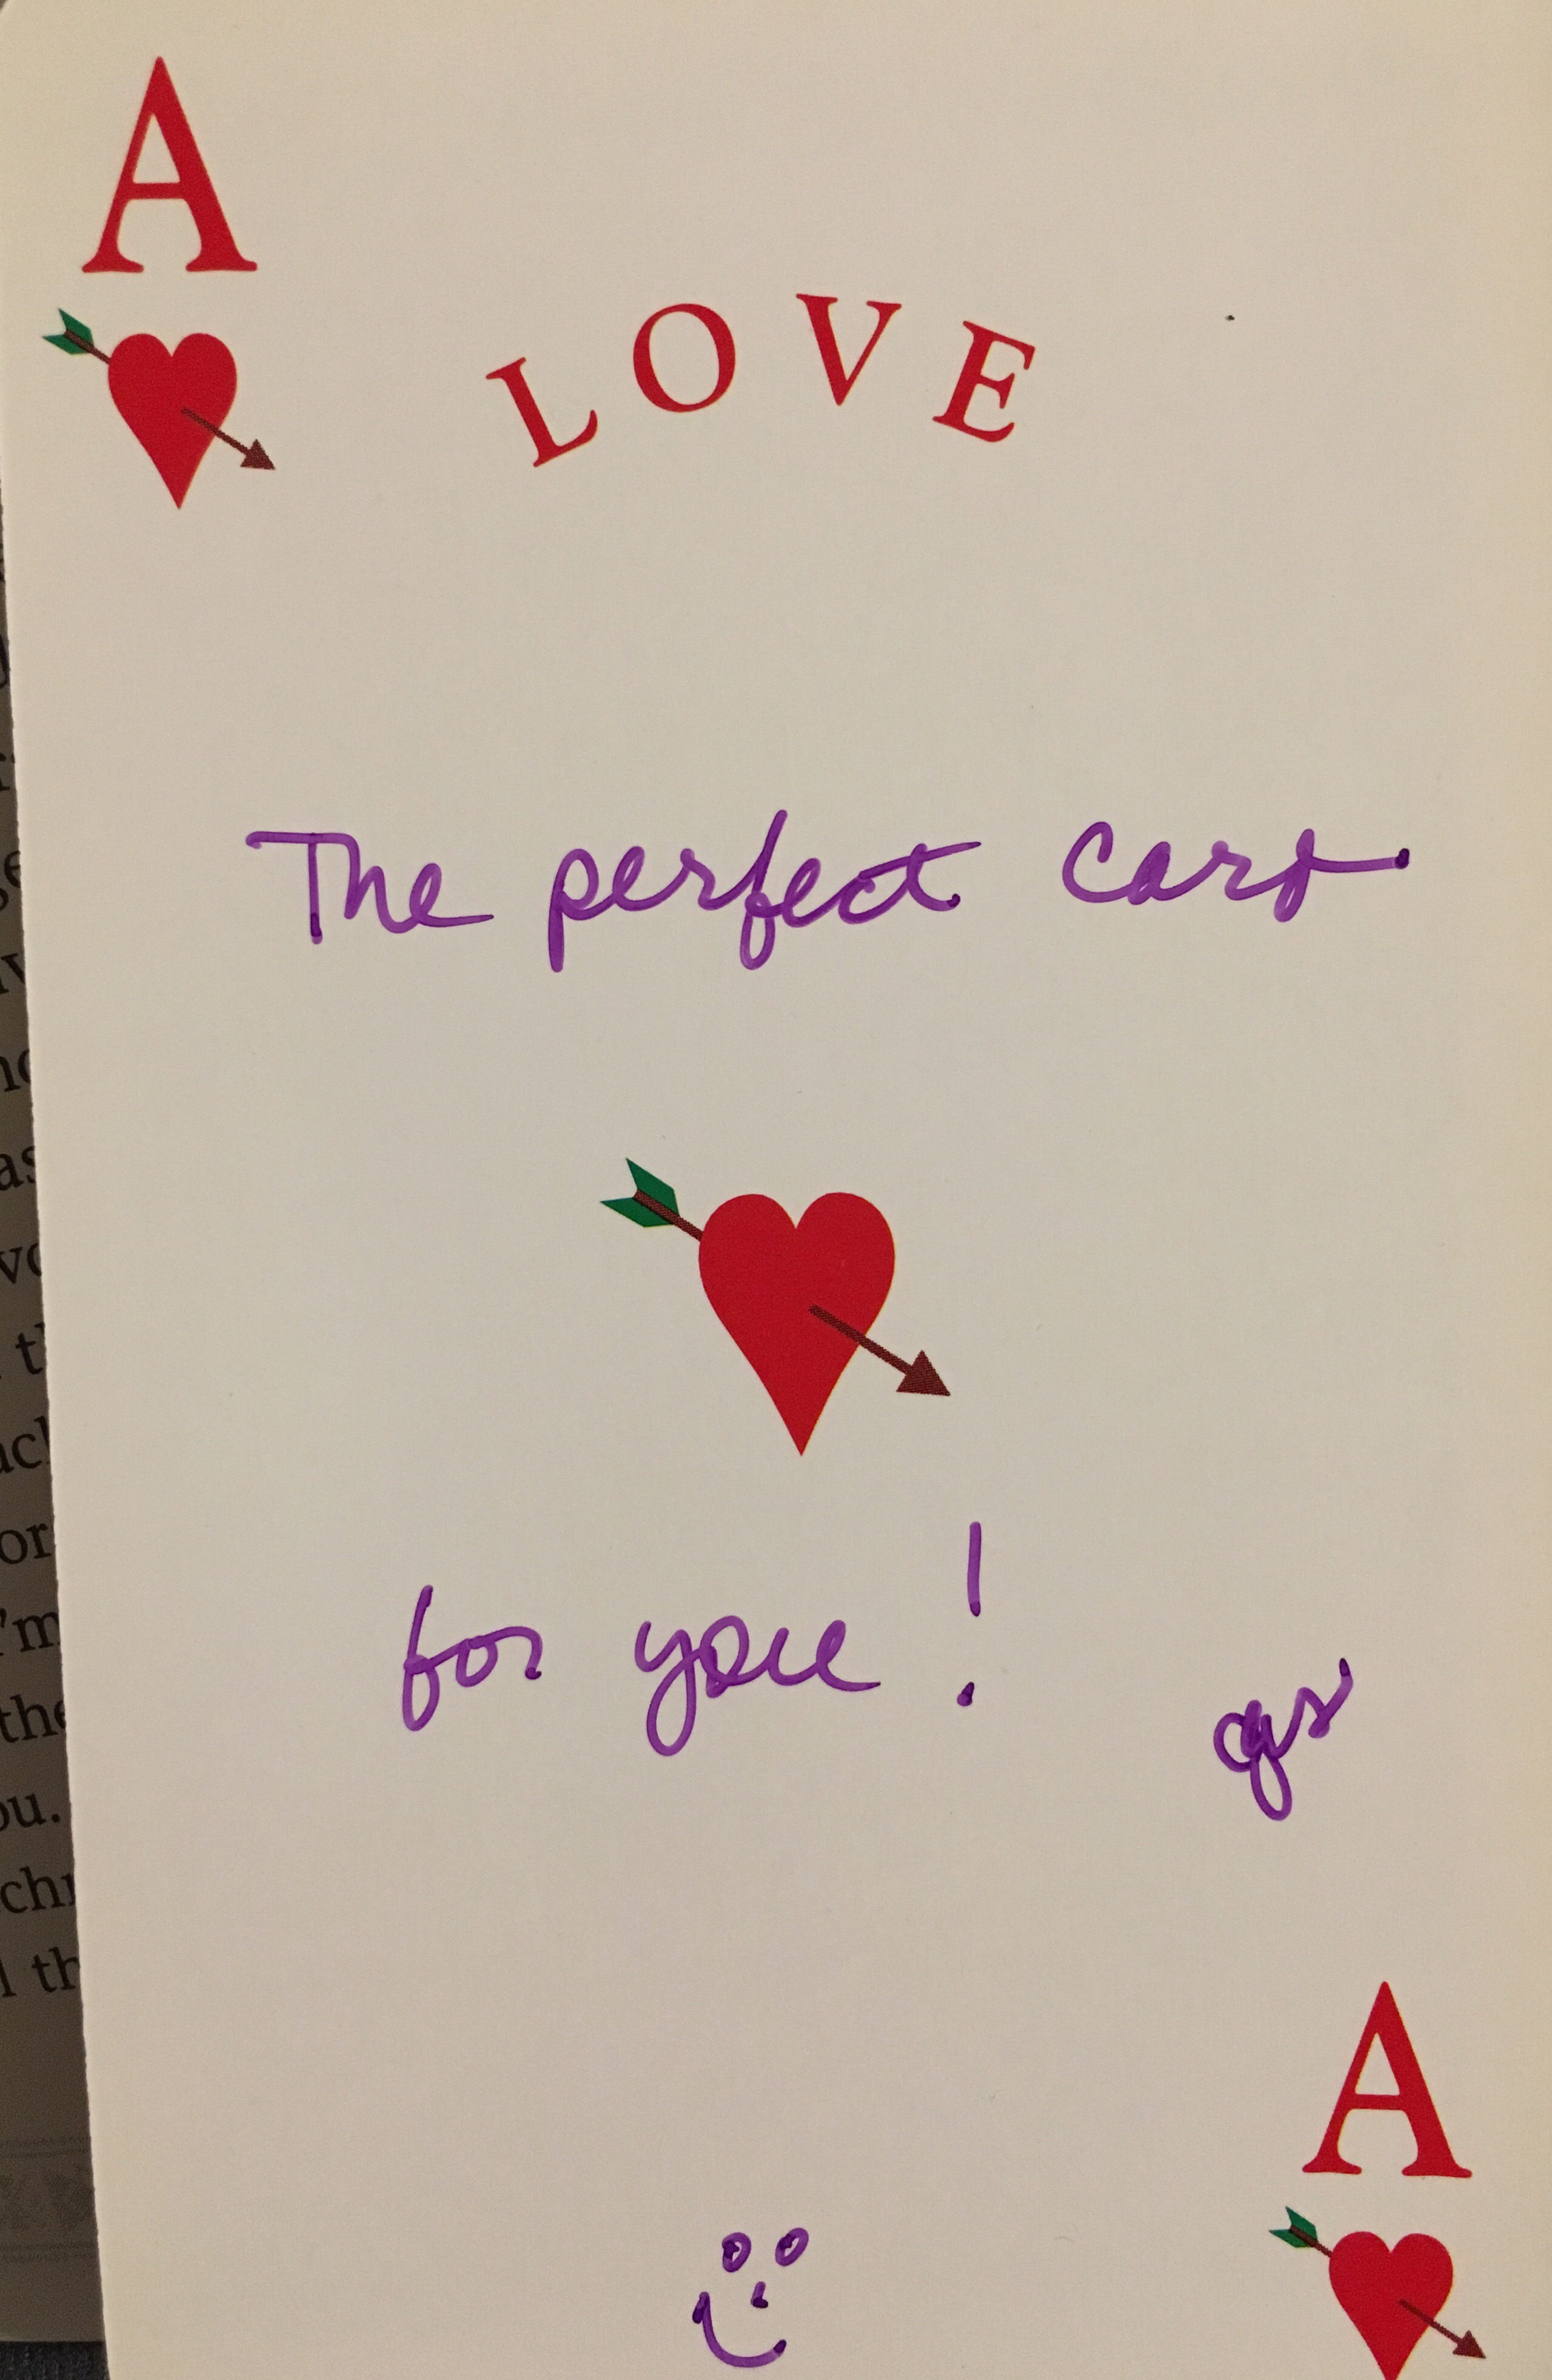 A
LOVE
The perfect card
for you!
A